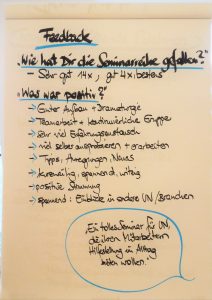 Feedback
„Wie hat Dir die Seminarreihe gefallen?"
- Sehr gut 14x, gut 4x
„Was war positiv?"
→ Guter Aufbau + Dramaturgie
→ Teamarbeit + kontinuierliche Gruppe
→ sehr viel Erfahrungsaustausch
→ viel selber ausprobieren + erarbeiten
→ Tipps, Anregungen, Neues
→ kurzweilig, spannend, witzig
→ positive Stimmung
→ spannend: Einblicke in andere UN/Branchen
Ein tolles Seminar für UN,
die ihren Mitarbeitern
Hilfestellung im Alltag
bieten wollen.